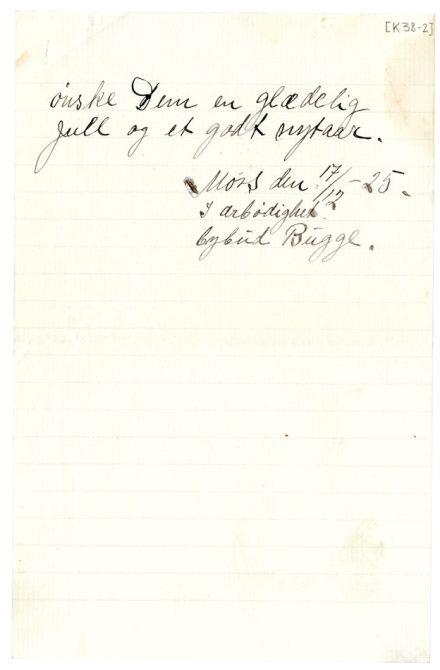 [K38-2]
ønske Dem en glædelig
Jull og et godt nytaar.
Moss den 17/12-25.
I ærbødighet.
bybud Bugge.